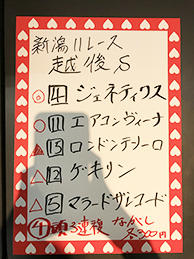 新潟11レース
越後S
◎⑭ジェネティクス
○⑪エアコンヴィーナ
▲⑬ロンドンテソーロ
△⑫ゲキリン
△⑤マラードザレコード
④頭3連複 ながし
各300円